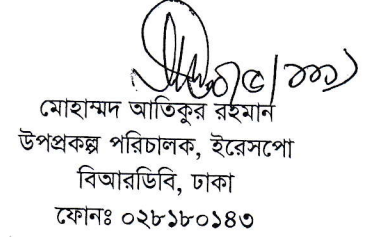 মোহাম্মদ আতিকুর রহমান
উপপ্রকল্প পরিচালক, ইরেসপো
বিআরডিবি, ঢাকা
ফোনঃ ০২৮১৮০১৪৩